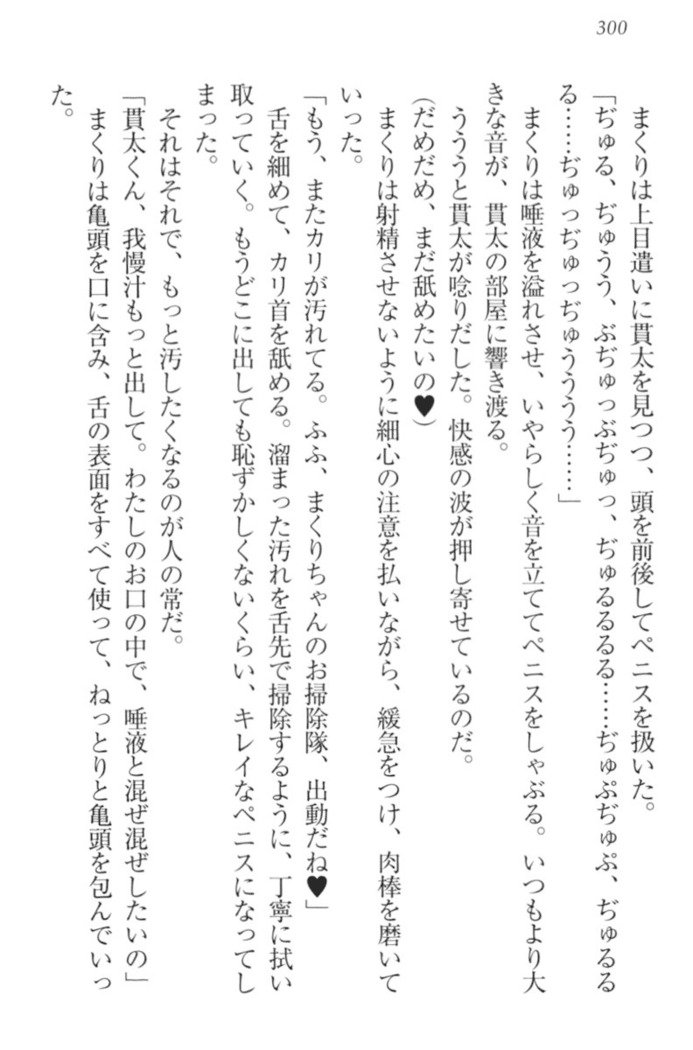 300
まくりは上目遣いに貫太を見つつ、頭を前後してペニスを扱いた。
「ぢゅる、ぢゅうう、ぶぢゅっぶぢゅっ、ぢゅるるるる……ぢゅぷぢゅぷ、ぢゅるる
る……ぢゅっぢゅっぢゅうううう……」
まくりは唾液を溢れさせ、いやらしく音を立ててペニスをしゃぶる。いつもより大
きな音が、貫太の部屋に響き渡る。
うううと貫太が唸りだした。快感の波が押し寄せているのだ。
(だめだめ、まだ舐めたいの♥)
まくりは射精させないように細心の注意を払いながら、緩急をつけ、肉棒を磨いて
いった。
「もう、またカリが汚れてる。ふふ、まくりちゃんのお掃除隊、出動だね♥」
舌を細めて、カリ首を舐める。溜まった汚れを舌先で掃除するように、丁寧に拭い
取っていく。もうどこに出しても恥ずかしくないくらい、キレイなペニスになってし
まった。
それはそれで、もっと汚したくなるのが人の常だ。
「貫太くん、我慢汁もっと出して。わたしのお口の中で、唾液と混ぜ混ぜしたいの」
まくりは亀頭を口に含み、舌の表面をすべて使って、ねっとりと亀頭を包んでいっ
た。